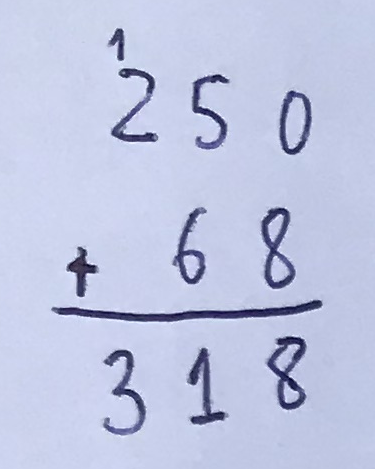 1
250
+ 68
318